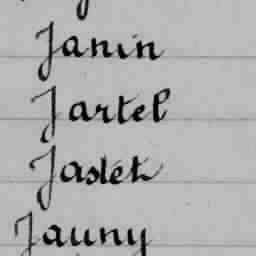 Janin
Jartel
Jaslet
Jauny